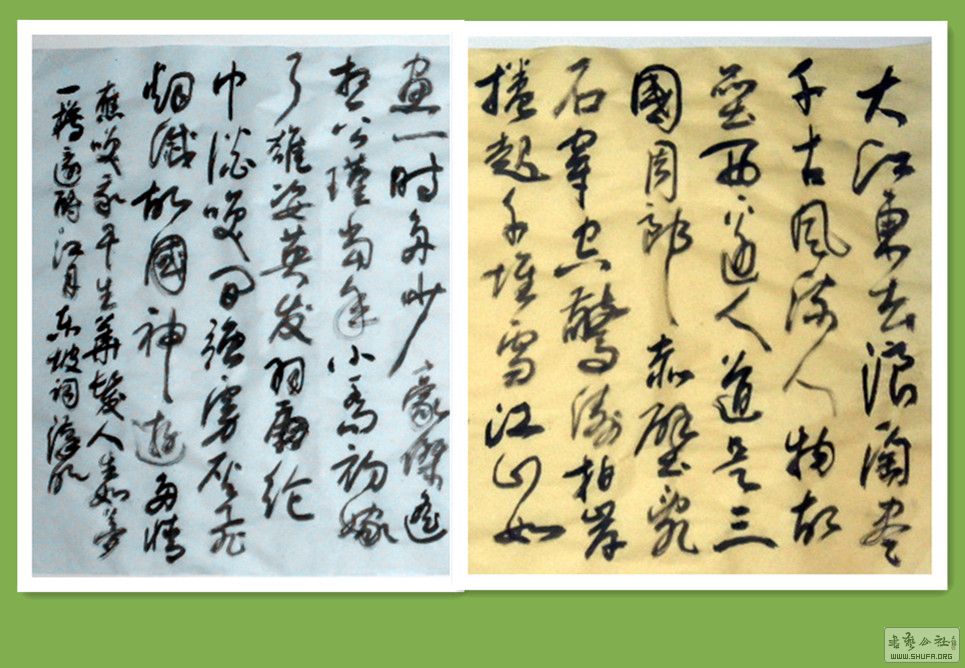 大江東去浪淘盡
千古風流人物故
壘西邊人道是三
國周郎赤壁亂
石穿空驚濤拍岸
捲起千堆雪江山如
畫一時多少豪傑遙
想公瑾當年小喬初嫁
了雄姿英发羽扇纶
巾談笑间強虜灰飛
烟滅故國神遊多情
應笑我平生華髮人生如夢
一樽還酹江月东坡词
書藝公社
WWW.SHUFA.ORG